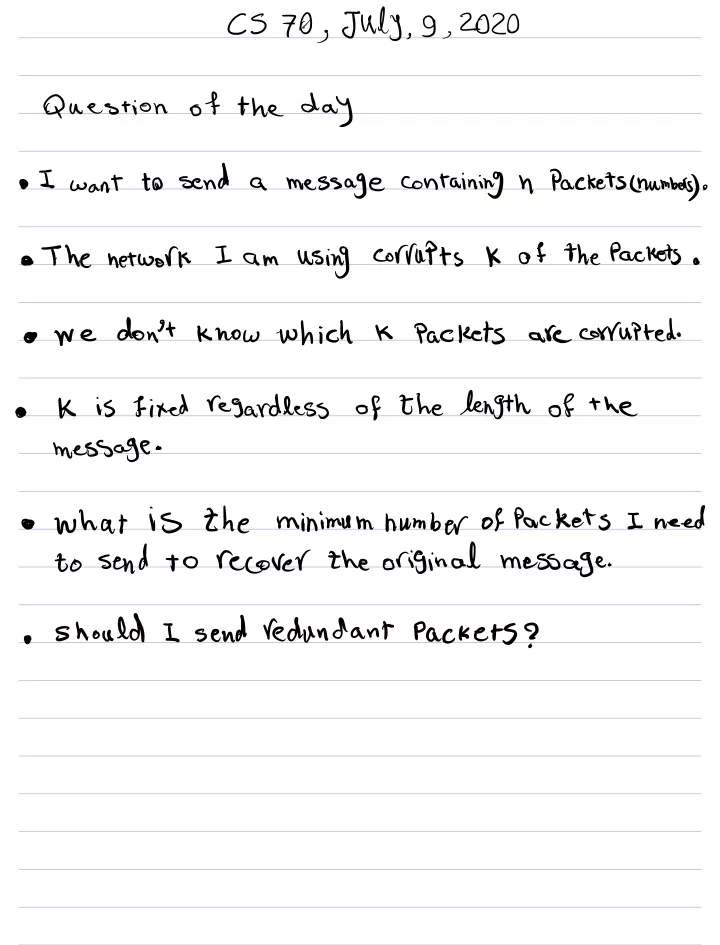 CS 70, July, 9, 2020
Question of the day
• I want to send a message containing n Packets (numbers).
• The network I am using corrupts K of the Packets.
• we don't know which K Packets are corrupted.
• K is fixed regardless of the length of the
message.
• what is the minimum number of Packets I need
to send to recover the original message.
• should I send redundant Packets?